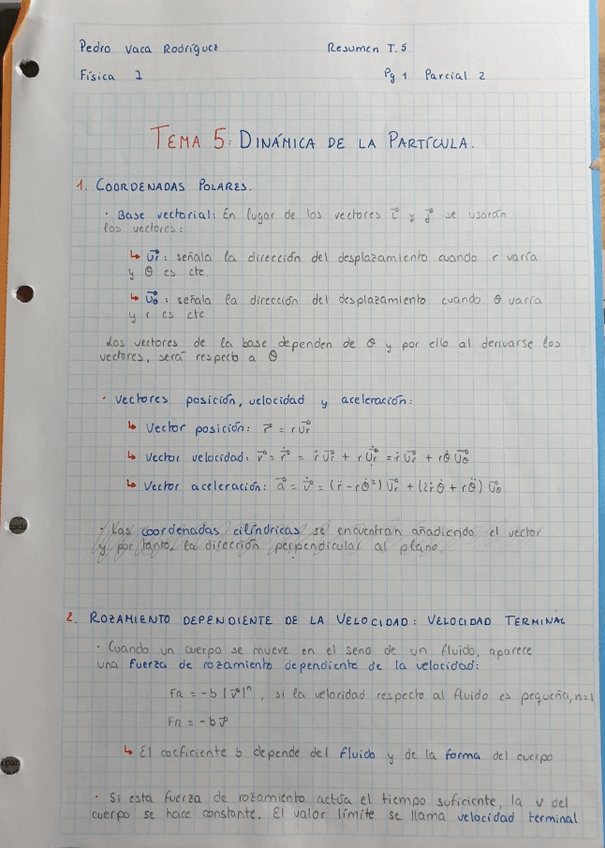 Pedro Vaca Rodríguez Resumen T.5
Física 1 Pg 1 Parcial 2
TEMA 5: DINÁMICA DE LA PARTÍCULA.
1. COORDENADAS POLARES.
· Base vectorial: En lugar de los vectores i⃗ y j⃗ se usarán
los vectores:
↳ u⃗r : señala la dirección del desplazamiento cuando r varía
y θ es cte
↳ u⃗θ : señala la dirección del desplazamiento cuando θ varía
y r es cte
Los vectores de la base dependen de θ y por ello al derivarse los
vectores, será respecto a θ
· Vectores posición, velocidad y aceleración:
↳ Vector posición: r⃗ = r u⃗r
↳ Vector velocidad: v⃗ = ṙ⃗ = ṙ u⃗r + r u̇⃗r = ṙ u⃗r + r θ̇ u⃗θ
↳ Vector aceleración: a⃗ = v̇⃗ = (r̈ - rθ̇²) u⃗r + (2ṙθ̇ + rθ̈) u⃗θ
· Las coordenadas cilíndricas se encuentran añadiendo el vector
y por tanto, la dirección perpendicular al plano.
2. ROZAMIENTO DEPENDIENTE DE LA VELOCIDAD: VELOCIDAD TERMINAL
· Cuando un cuerpo se mueve en el seno de un fluido, aparece
una fuerza de rozamiento dependiente de la velocidad:
FR = -b |v⃗|ⁿ, si la velocidad respecto al fluido es pequeña, n=1
FR = -b v⃗
↳ El coeficiente b depende del fluido y de la forma del cuerpo
· Si esta fuerza de rozamiento actúa el tiempo suficiente, la v del
cuerpo se hace constante. El valor límite se llama velocidad terminal